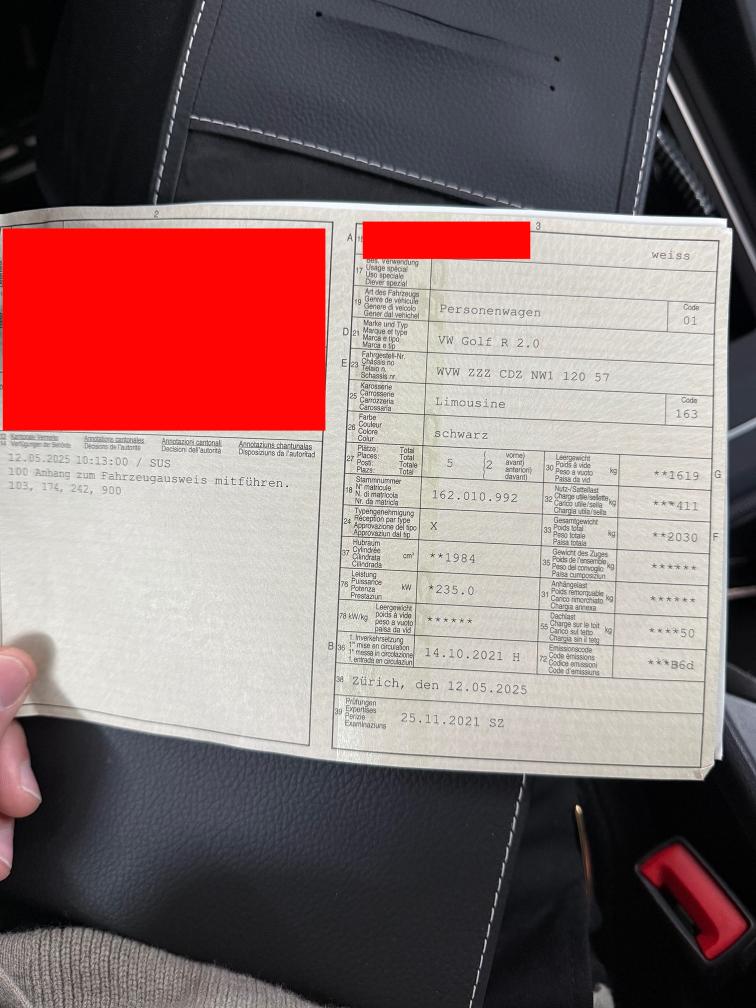 2
13 Kantonale Vermerke Annotations cantonales Annotazioni cantonali Annotaziuns chantunalas
14 Verfügungen der Behörde Décisions de l'autorité Decisioni dell'autorità Disposiziuns da l'autoritad
12.05.2025 10:13:00 / SUS
100 Anhang zum Fahrzeugausweis mitführen.
103, 174, 242, 900
3
A 15 weiss
Bes. Verwendung
17 Usage spécial
Uso speciale
Diever spezial
Art des Fahrzeugs
19 Genre de véhicule
Genere di veicolo
Gener dal vehichel
Personenwagen
Code
01
Marke und Typ
D 21 Marque et type
Marca e tipo
Marca e tip
VW Golf R 2.0
Fahrgestell-Nr.
E 23 Châssis no
Telaio n.
Schassis nr.
WVW ZZZ CDZ NW1 120 57
Karosserie
25 Carrosserie
Carrozzeria
Carossaria
Limousine
Code
163
Farbe
26 Couleur
Colore
Colur
schwarz
Plätze: Total
27 Places: Total
Posti: Totale
Plazs: Total
5
(2 vorne)
avant)
anteriori)
davant)
Leergewicht
30 Poids à vide kg
Peso a vuoto
Paisa da vid
**1619
G
Stammnummer
18 N° matricule
N. di matricola
Nr. da matricla
162.010.992
Nutz-/Sattellast
32 Charge utile/sellette kg
Carico utile/sella
Chargia utila/sella
***411
Typengenehmigung
24 Réception par type
Approvazione del tipo
Approvaziun dal tip
X
Gesamtgewicht
33 Poids total kg
Peso totale
Paisa totala
**2030
F
Hubraum
37 Cylindrée cm³
Cilindrata
Cilindrada
**1984
Gewicht des Zuges
35 Poids de l'ensemble kg
Peso del convoglio
Paisa cumposiziun
******
Leistung
76 Puissance kW
Potenza
Prestaziun
*235.0
Anhängelast
31 Poids remorquable kg
Carico rimorchiato
Chargia annexa
******
Leergewicht
78 kW/kg poids à vide
peso a vuoto
paisa da vid
******
Dachlast
55 Charge sur le toit kg
Carico sul tetto
Chargia sin il tetg
****50
1. Inverkehrsetzung
B 36 1re mise en circulation
1a messa in circolazione
1. entrada en circulaziun
14.10.2021 H
Emissionscode
72 Code émissions
Codice emissioni
Code d'emissiuns
***B6d
38 Zürich, den 12.05.2025
Prüfungen
39 Expertises
Perizie
Examinaziuns
25.11.2021 SZ